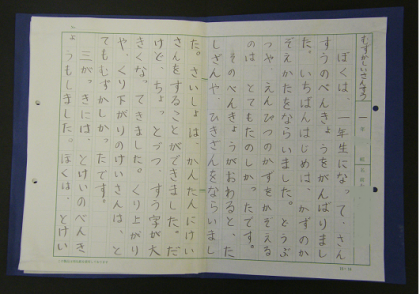 むずかしいさんすう
ぼくは、一年生になって、さん
すうのべんきょうをがんばりまし
た。いちばんはじめは、かずのか
ぞえかたをならいました。どうぶ
つや、えんぴつのかずをかぞえる
のは、とてもたのしかったです。
そのべんきょうがおわると、た
しざんや、ひきざんをならいまし
た。さいしょは、かんたんにけい
さんをすることができました。だ
けど、ちょっとづつ、すう字が大
きくなってきました。くり上がり
や、くり下がりのけいさんは、と
てもむずかしかったです。
三がっきには、とけいのべんき
ょうもしました。ぼくは、とけい